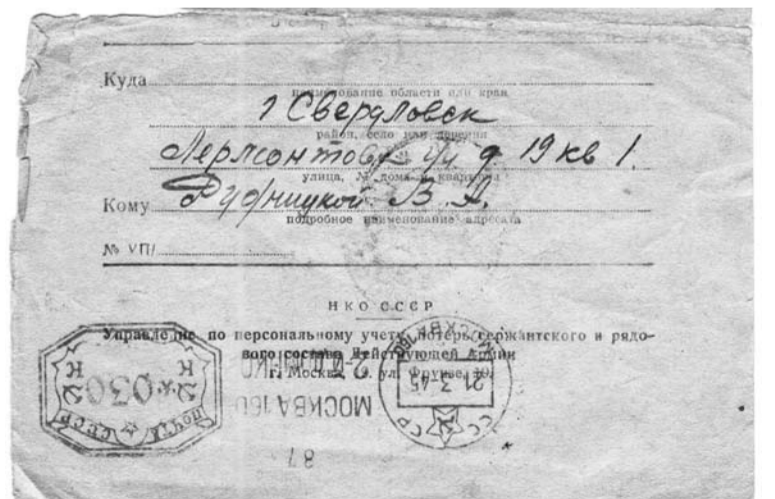 Куда
наименование области или края
г Свердловск
район, село или деревня
Лермонтова ул д. 19 кв 1.
улица, № дома и квартиры
Кому Рудницкой В. А.
подробное наименование адресата
№ УП/
НКО СССР
Управление по персональному учету потерь сержантского и рядо-
вого состава Действующей Армии
г. Москва, 19, ул. Фрунзе, 19.
К К
030
ПОЧТА
СССР
МОСКВА 160
87
МОСКВА
21-3-45
СССР